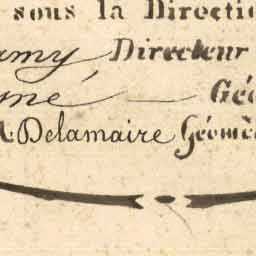 sous la Directi
my Directeur
mé Géo
A Delamaire Géomè